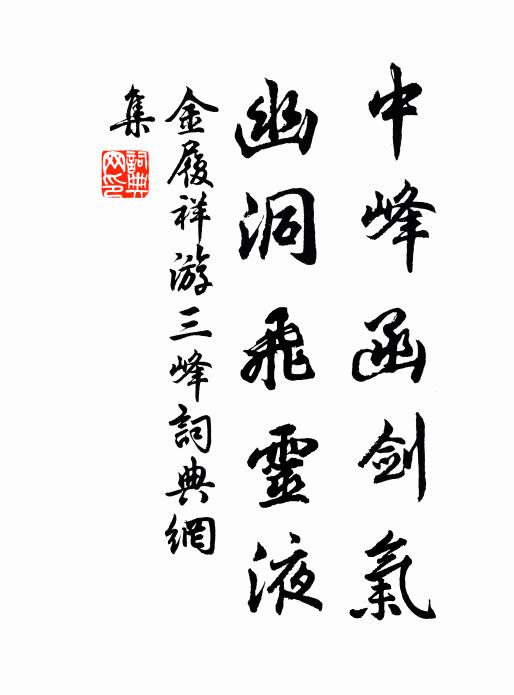 中峰函劍氣
幽洞飛靈液
金履祥游三峰詞典網
集
詞典網印